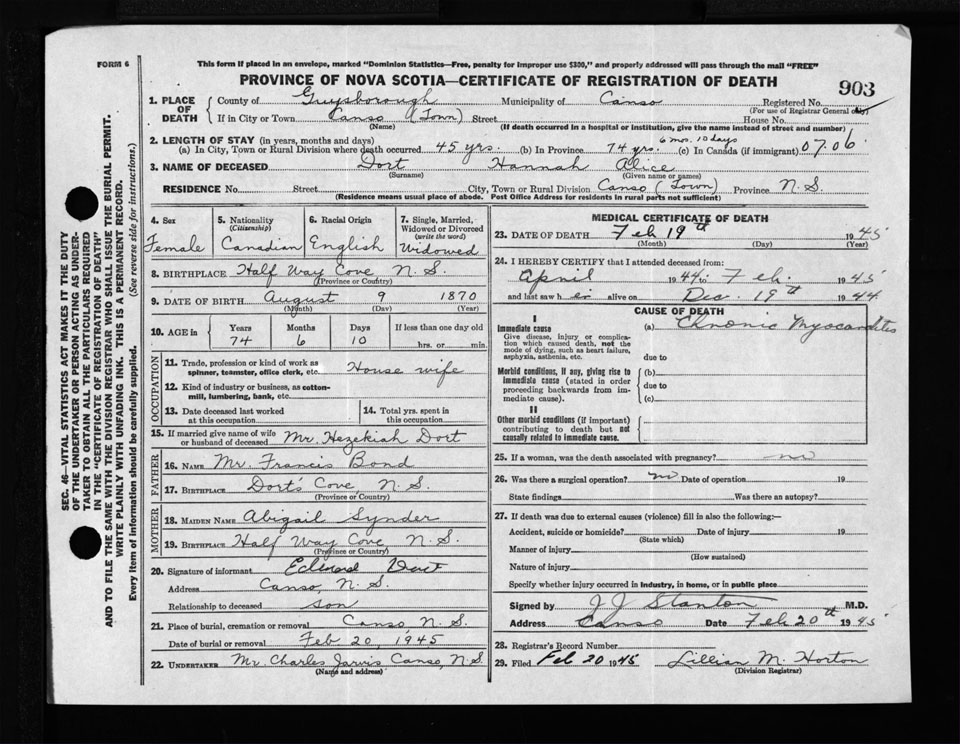 FORM 6
This form if placed in an envelope, marked "Dominion Statistics—Free, penalty for improper use $300," and properly addressed will pass through the mail "FREE"
PROVINCE OF NOVA SCOTIA—CERTIFICATE OF REGISTRATION OF DEATH
903
1. PLACE OF DEATH
County of Guysborough Municipality of Canso Registered No.
(For use of Registrar General only)
If in City or Town Canso (Town) Street House No.
(Name) (If death occurred in a hospital or institution, give the name instead of street and number)
2. LENGTH OF STAY (in years, months and days)
6 mos. 10 days
(a) In City, Town or Rural Division where death occurred 45 yrs. (b) In Province 74 yrs. (c) In Canada (if immigrant) 0706
3. NAME OF DECEASED Dort Hannah Alice
(Surname) (Given name or names)
RESIDENCE No. Street City, Town or Rural Division Canso (Town) Province N.S.
(Residence means usual place of abode. Post Office Address for residents in rural parts not sufficient)
4. Sex
Female
5. Nationality
(Citizenship)
Canadian
6. Racial Origin
English
7. Single, Married,
Widowed or Divorced
(write the word)
Widowed
8. BIRTHPLACE Half Way Cove, N.S.
(Province or Country)
9. DATE OF BIRTH August 9 1870
(Month) (Day) (Year)
10. AGE in Years Months Days If less than one day old
74 6 10 hrs. or min.
OCCUPATION
11. Trade, profession or kind of work as
spinner, teamster, office clerk, etc. House wife
12. Kind of industry or business, as cotton-
mill, lumbering, bank, etc.
13. Date deceased last worked
at this occupation
14. Total yrs. spent in
this occupation
15. If married give name of wife
or husband of deceased Mr. Hezekiah Dort
FATHER
16. NAME Mr. Francis Bond
17. BIRTHPLACE Dort's Cove N.S.
(Province or Country)
MOTHER
18. MAIDEN NAME Abigail Synder
19. BIRTHPLACE Half Way Cove, N.S.
(Province or Country)
20. Signature of informant Edward Dort
Address Canso, N.S.
Relationship to deceased son
21. Place of burial, cremation or removal Canso, N.S.
Date of burial or removal Feb 20, 1945
22. UNDERTAKER Mr. Charles Jarvis Canso, N.S.
(Name and address)
MEDICAL CERTIFICATE OF DEATH
23. DATE OF DEATH Feb 19th 1945
(Month) (Day) (Year)
24. I HEREBY CERTIFY that I attended deceased from:
April 1944 to Feb. 1945
and last saw h er alive on Dec. 19th 1944
CAUSE OF DEATH
I
Immediate cause
Give disease, injury or complica-
tion which caused death, not the
mode of dying, such as heart failure,
asphyxia, asthenia, etc.
(a) Chronic Myocarditis
due to
Morbid conditions, if any, giving rise to
immediate cause (stated in order
proceeding backwards from im-
mediate cause).
(b)
due to
(c)
II
Other morbid conditions (if important)
contributing to death but not
causally related to immediate cause.
25. If a woman, was the death associated with pregnancy? no
26. Was there a surgical operation? no Date of operation 19
State findings Was there an autopsy?
27. If death was due to external causes (violence) fill in also the following:—
Accident, suicide or homicide? Date of injury 19
(State which)
Manner of injury
(How sustained)
Nature of injury
Specify whether injury occurred in industry, in home, or in public place
Signed by J J Stanton M.D.
Address Canso Date Feb 20th 1945
28. Registrar's Record Number
29. Filed Feb 20 1945 Lillian M. Horton
(Division Registrar)
SEC. 46—VITAL STATISTICS ACT MAKES IT THE DUTY
OF THE UNDERTAKER OR PERSON ACTING AS UNDER-
TAKER TO OBTAIN ALL THE PARTICULARS REQUIRED
IN THE "CERTIFICATE OF REGISTRATION OF DEATH"
AND TO FILE THE SAME WITH THE DIVISION REGISTRAR WHO SHALL ISSUE THE BURIAL PERMIT.
WRITE PLAINLY WITH UNFADING INK. THIS IS A PERMANENT RECORD.
Every item of information should be carefully supplied. (See reverse side for instructions.)